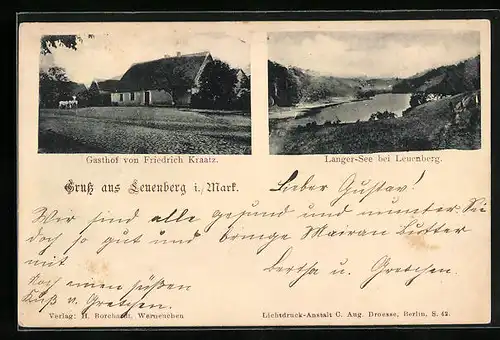 Gasthof von Friedrich Kraatz.
Langer-See bei Leuenberg.
Gruß aus Leuenberg i. Mark.
Lieber Gustav!
Wir sind alle gesund und munter. Sie
doch so gut und bringe Mairan Butter
mit
Bertha u. Gretchen.
Noch einen süßen
Kuß v. Gretchen.
Verlag: H. Borchardt, Werneuchen
Lichtdruck-Anstalt C. Aug. Droesse, Berlin, S. 42.